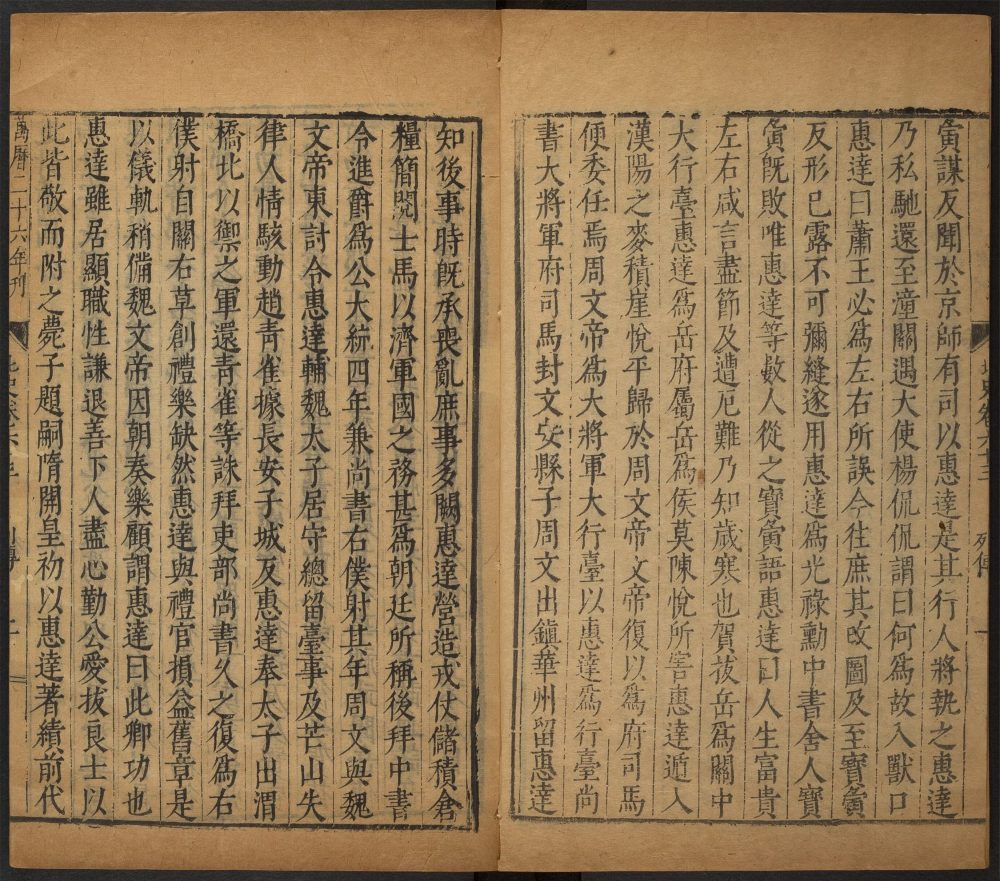 寅謀反聞於京師有司以惠達是其行人將執之惠達
乃私馳還至潼關遇大使楊侃侃謂曰何為故入獸口
惠達曰蕭王必為左右所誤今往庶其改圖及至寶寅
反形已露不可彌縫遂用惠達為光祿勳中書舍人寶
寅既敗唯惠達等數人從之寶寅語惠達曰人生富貴
左右咸言盡節及遭厄難乃知歲寒也賀拔岳為關中
大行臺惠達為岳府屬岳為侯莫陳悅所害惠達遁入
漢陽之麥積崖悅平歸於周文帝文帝復以為府司馬
便委任焉周文帝為大將軍大行臺以惠達為行臺尚
書大將軍府司馬封文安縣子周文出鎮華州留惠達
知後事時既承喪亂庶事多闕惠達營造戎仗儲積倉
糧簡閱士馬以濟軍國之務甚為朝廷所稱後拜中書
令進爵為公大統四年兼尚書右僕射其年周文與魏
文帝東討令惠達輔魏太子居守總留臺事及芒山失
律人情駭動趙青雀據長安子城反惠達奉太子出渭
橋北以禦之軍還青雀等誅拜吏部尚書久之復為右
僕射自關右草創禮樂缺然惠達與禮官損益舊章是
以儀軌稍備魏文帝因朝奏樂顧謂惠達曰此卿功也
惠達雖居顯職性謙退善下人盡心勤公愛拔良士以
此皆敬而附之薨子題嗣隋開皇初以惠達著績前代
萬曆二十六年刊